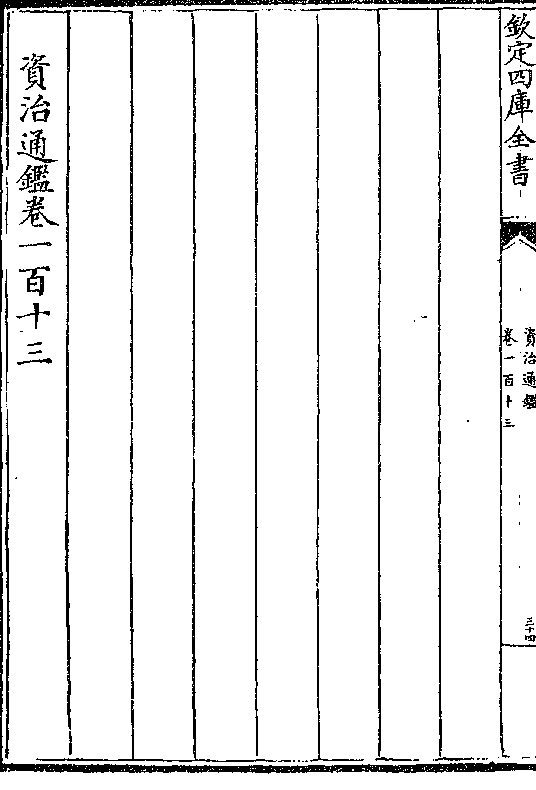 欽定四庫全書
資治通鑑
卷一百十三
三十四
資治通鑑卷一百十三